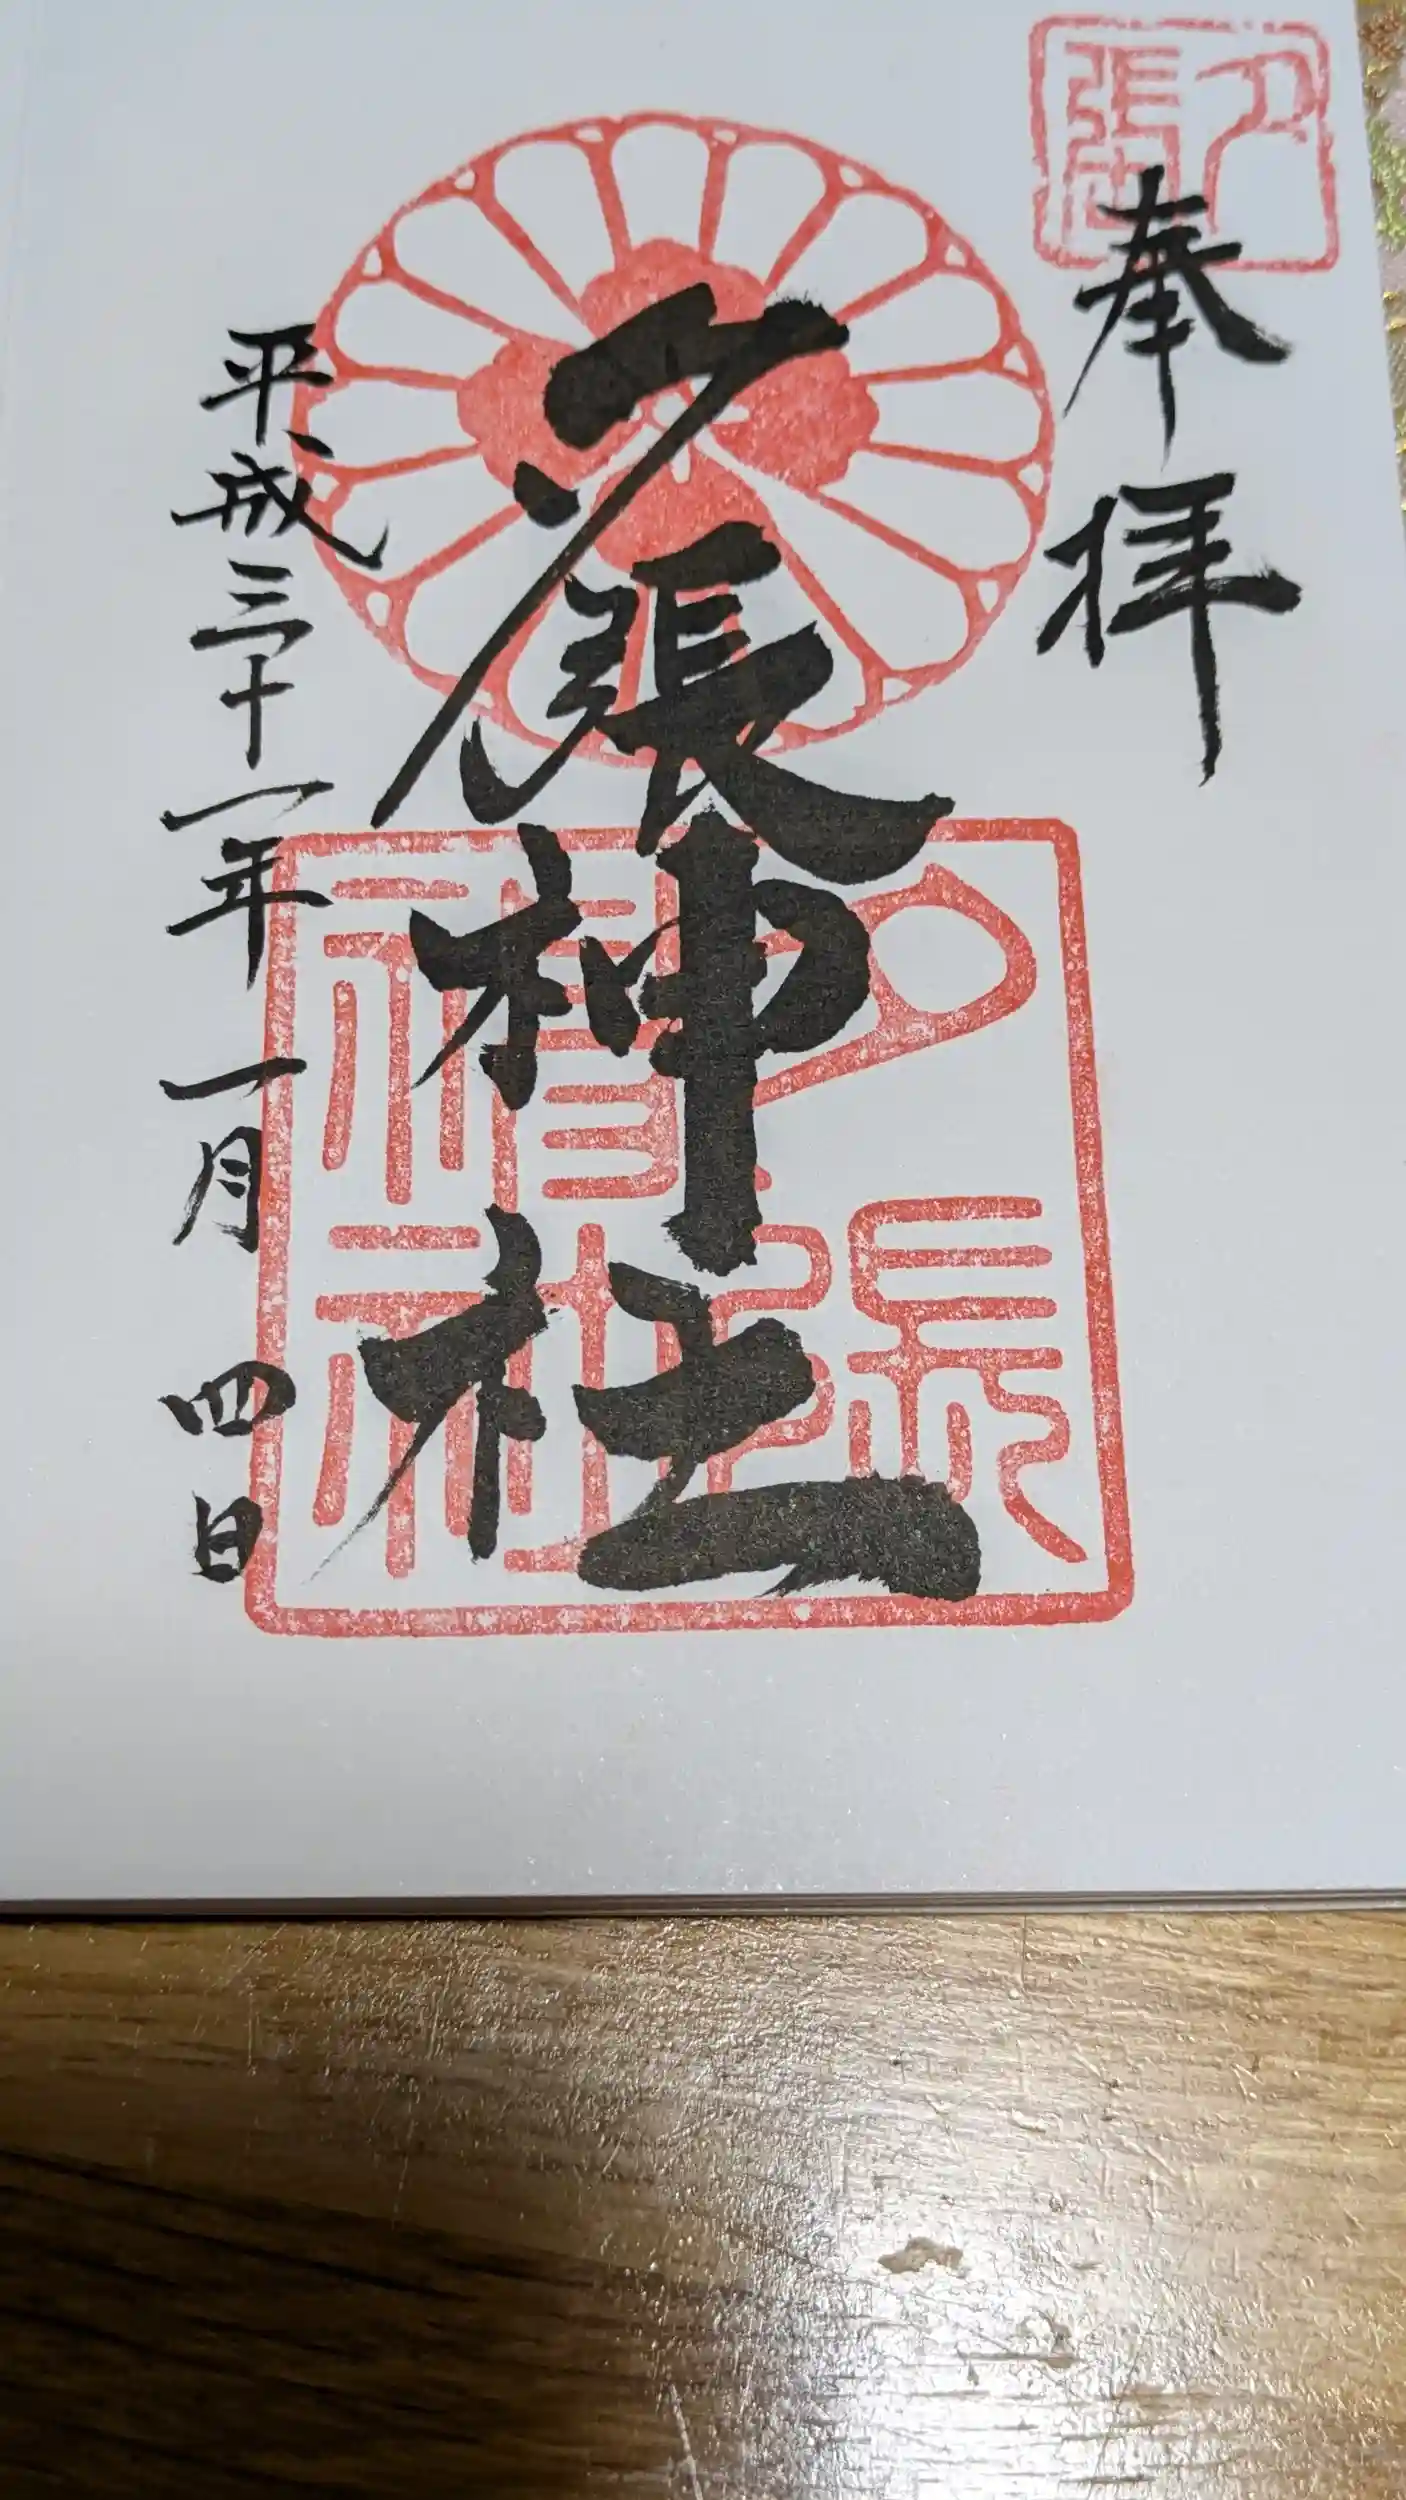 夕張
奉拝
夕張神社
夕張神社
平成三十一年一月四日